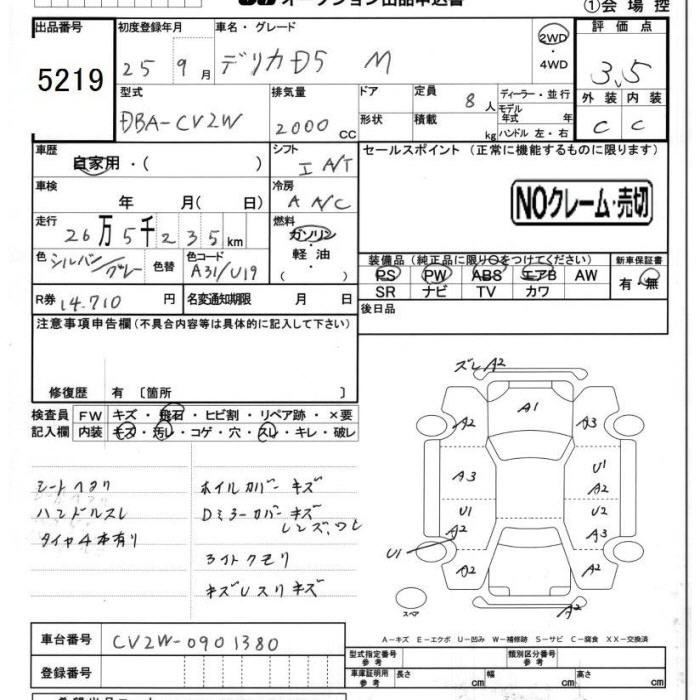 オークション出品申込書
①会場控
出品番号
5219
初度登録年月
25 9月
車名・グレード
デリカD5 M
2WD
・
4WD
評価点
3.5
外装 内装
C C
型式
DBA-CV2W
排気量
2000 CC
ドア
形状
定員 8人
積載 kg
ディーラー・並行
モデル
年式 年
ハンドル 左・右
車歴
自家用・( )
シフト
I A/T
車検
年 月( 日)
冷房
A A/C
走行
26万5千235km
燃料
ガソリン
・
軽油
( )
色 シルバー/グレー
色替
色コード
A31/U19
R券 14.710 円
名変通知期限 月 日
セールスポイント(正常に機能するものに限ります)
NOクレーム・売切
装備品(純正品に限り○をつけてください)
PS PW ABS エアB AW
SR ナビ TV カワ
新車保証書
有・無
後日品
注意事項申告欄(不具合内容等は具体的に記入して下さい)
修復歴 有〔箇所 〕
検査員 FW キズ・飛石・ヒビ割・リペア跡・×要
記入欄 内装 キズ・汚レ・コゲ・穴・スレ・キレ・破レ
シートヘタリ
ハンドルスレ
タイヤ4本有り
ホイルカバーキズ
Dミラーカバーキズ
レンズ、ワレ
ライトクモリ
キズUスリキズ
ズレA2
A1
A2
A3
A3
U1
A2
U1
A2
U2
A3
U1
A2
A2
A2
スペア
A-キズ E-エクボ U-凹み W-補修跡 S-サビ C-腐食 XX-交換済
車台番号
CV2W-0901380
登録番号
型式指定番号
参考
類別区分番号
参考
車庫証明用
参考
長さ cm
幅 cm
高さ cm